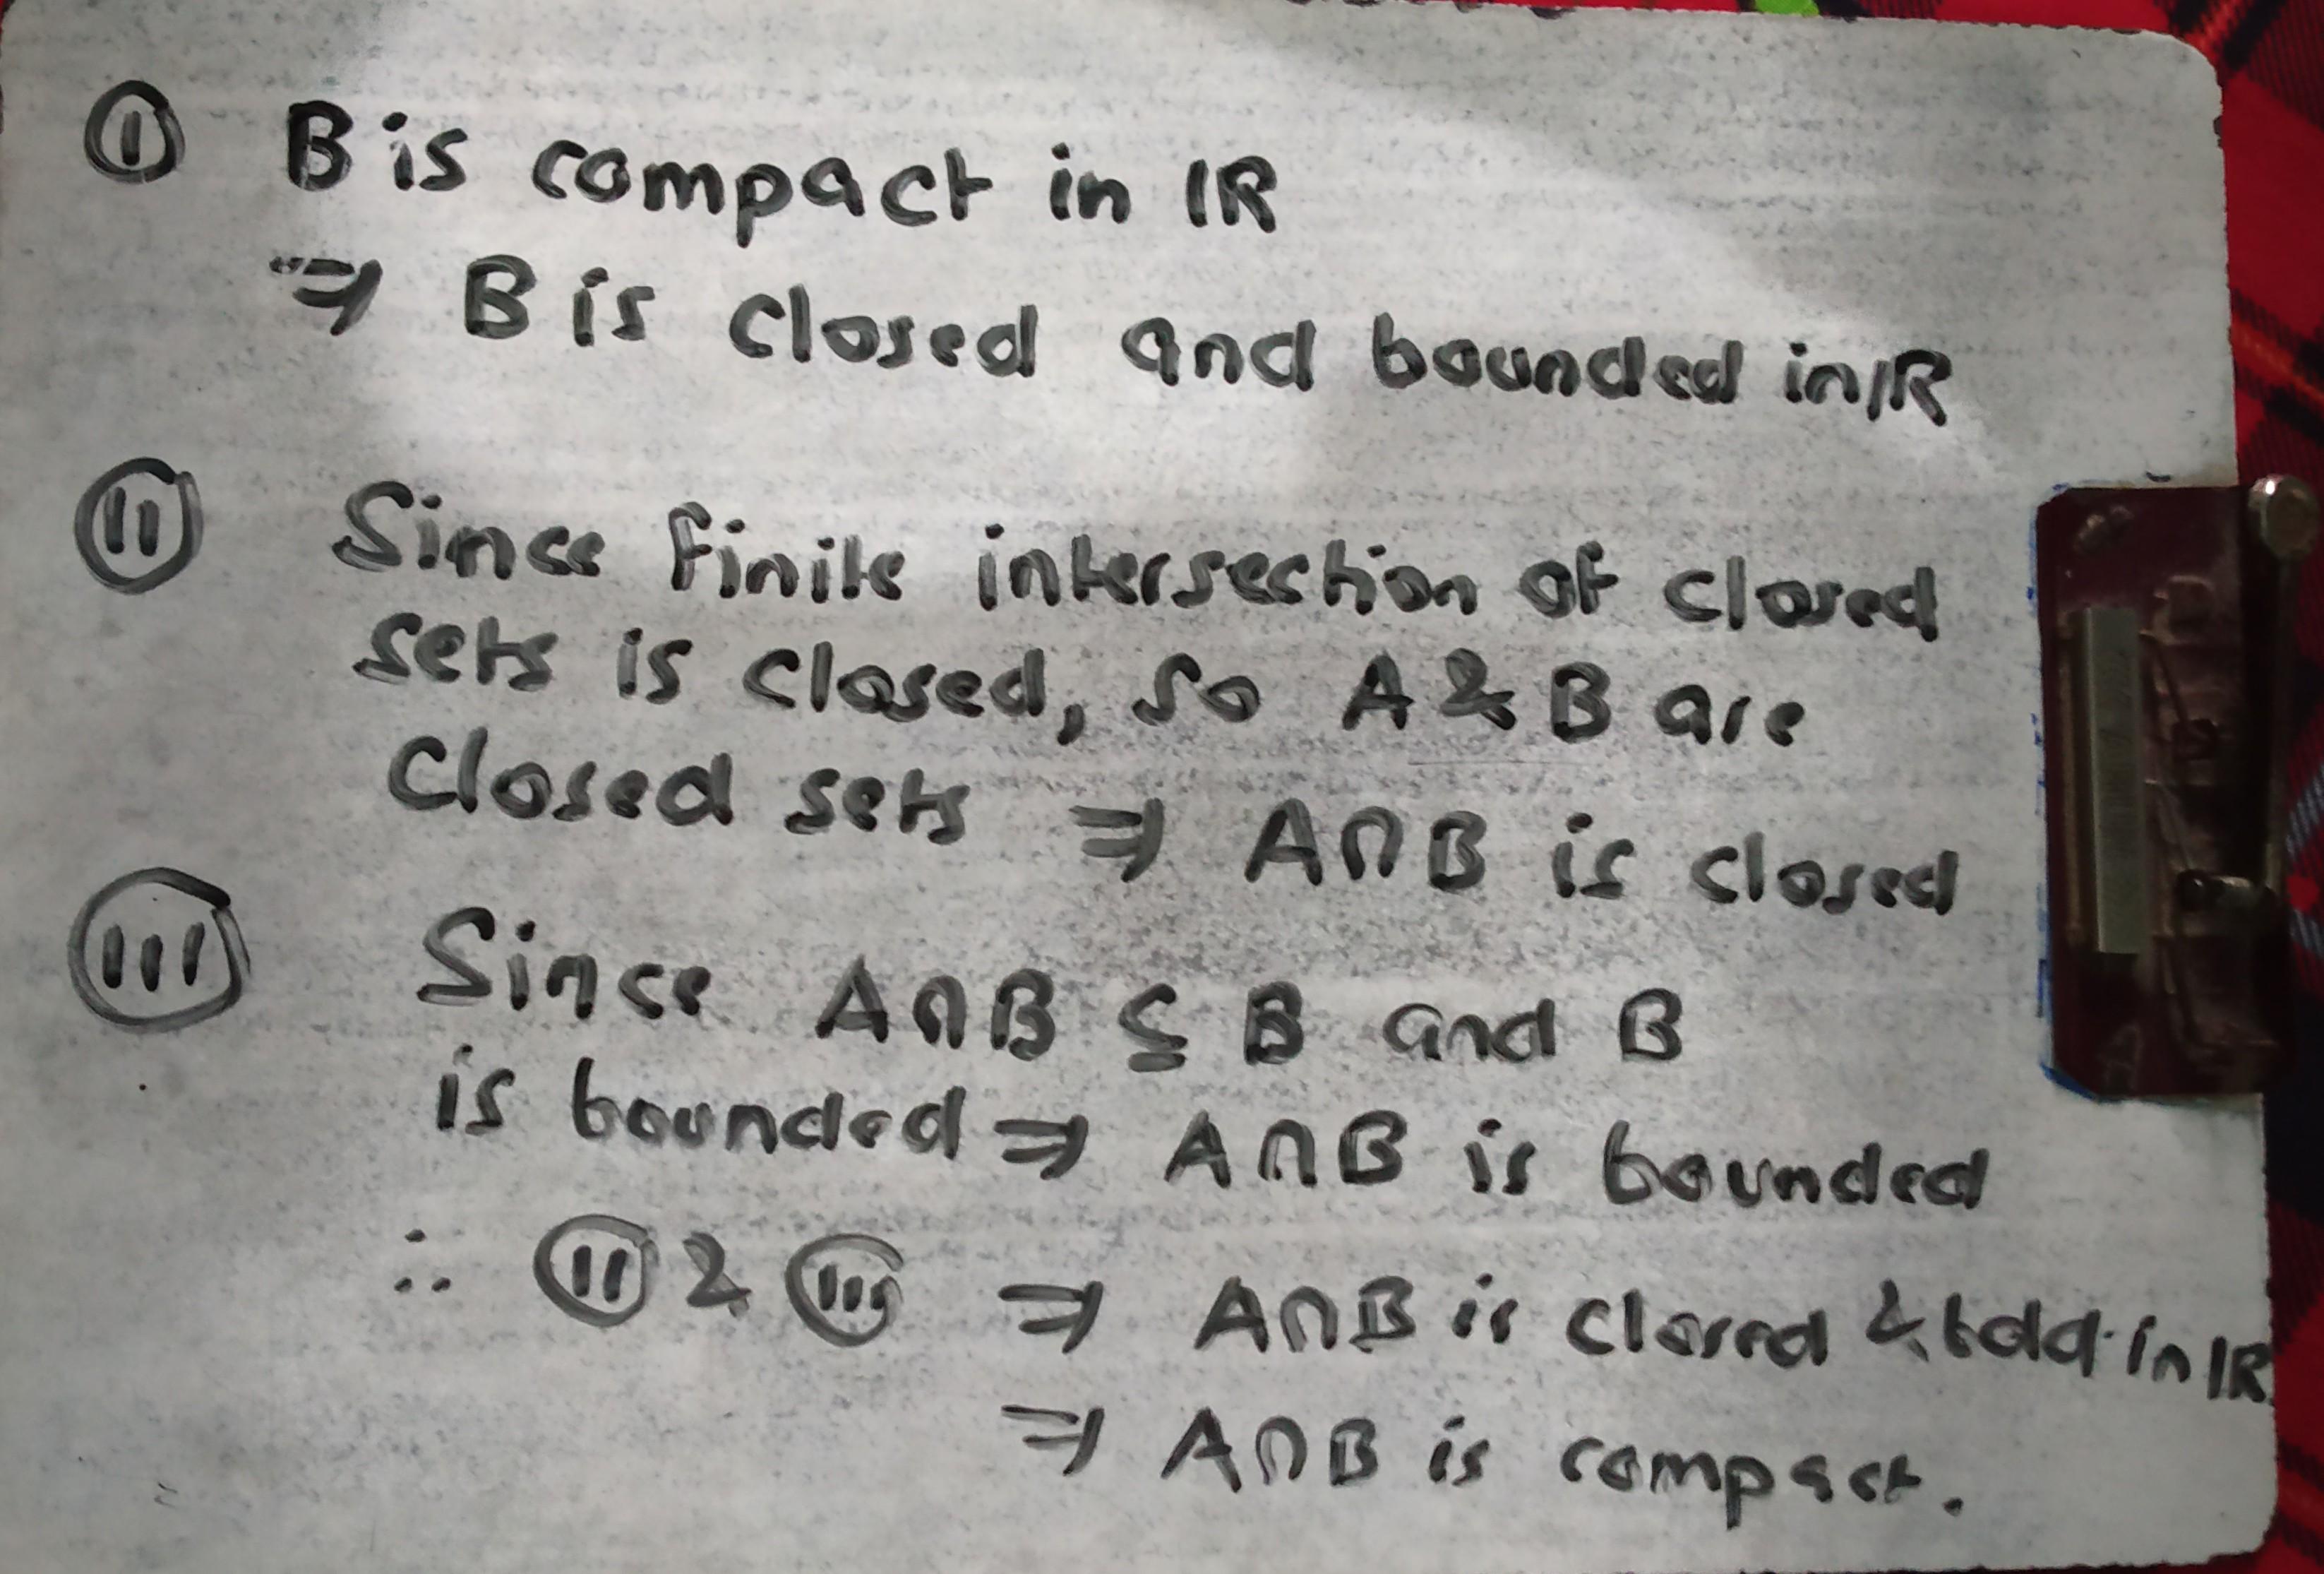 ① B is compact in IR
⇒ B is closed and bounded in IR
⑪ Since finite intersection of closed
sets is closed, so A & B are
closed sets ⇒ A∩B is closed
(111) Since A∩B ⊆ B and B
is bounded ⇒ A∩B is bounded
∴ (11) & (111) ⇒ A∩B is closed & bdd. in IR
⇒ A∩B is compact.